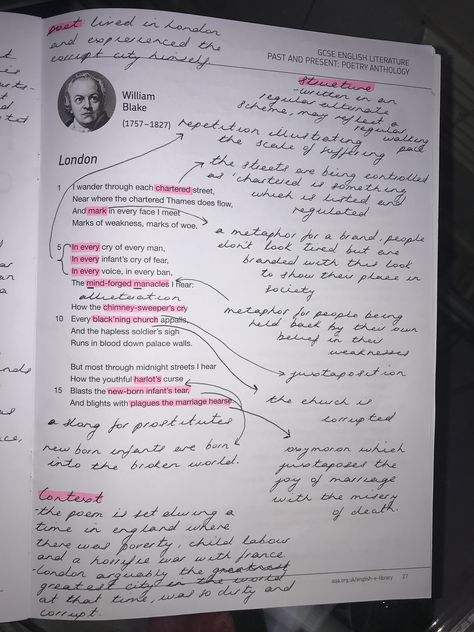 poet lived in London
and experienced the
corrupt city himself.
GCSE ENGLISH LITERATURE
PAST AND PRESENT: POETRY ANTHOLOGY
structure
- written in an
regular alternate
schema, may reflect a
regular walking
pace
William
Blake
(1757–1827)
repetition illustrating
the scale of suffering
London
the streets are being controlled
as 'chartered is something
which is listed and
regulated
1 I wander through each chartered street,
Near where the chartered Thames does flow,
And mark in every face I meet
Marks of weakness, marks of woe.
a metaphor for a brand, people
don't look tired but are
branded with this look
to show their place in
society
5 In every cry of every man,
In every infant's cry of fear,
In every voice, in every ban,
The mind-forged manacles I hear:
alliteration
metaphor for people being
held back by their own
belief in their
weaknesses
How the chimney-sweeper's cry
10 Every black'ning church appalls,
And the hapless soldier's sigh
Runs in blood down palace walls.
juxtaposition
But most through midnight streets I hear
How the youthful harlot's curse
15 Blasts the new-born infant's tear,
And blights with plagues the marriage hearse.
the church is
corrupted
a slang for prostitutes
new born infants are born
into the broken world.
oxymoron which
juxtaposes the
joy of marriage
with the misery
of death.
Context
- the poem is set during a
time in england where
there was poverty, child labour
and a horrific war with france
- London arguably the greatest
greatest city in the world
at that time, was so dirty and
corrupt.
aqa.org.uk/english-e-library
27